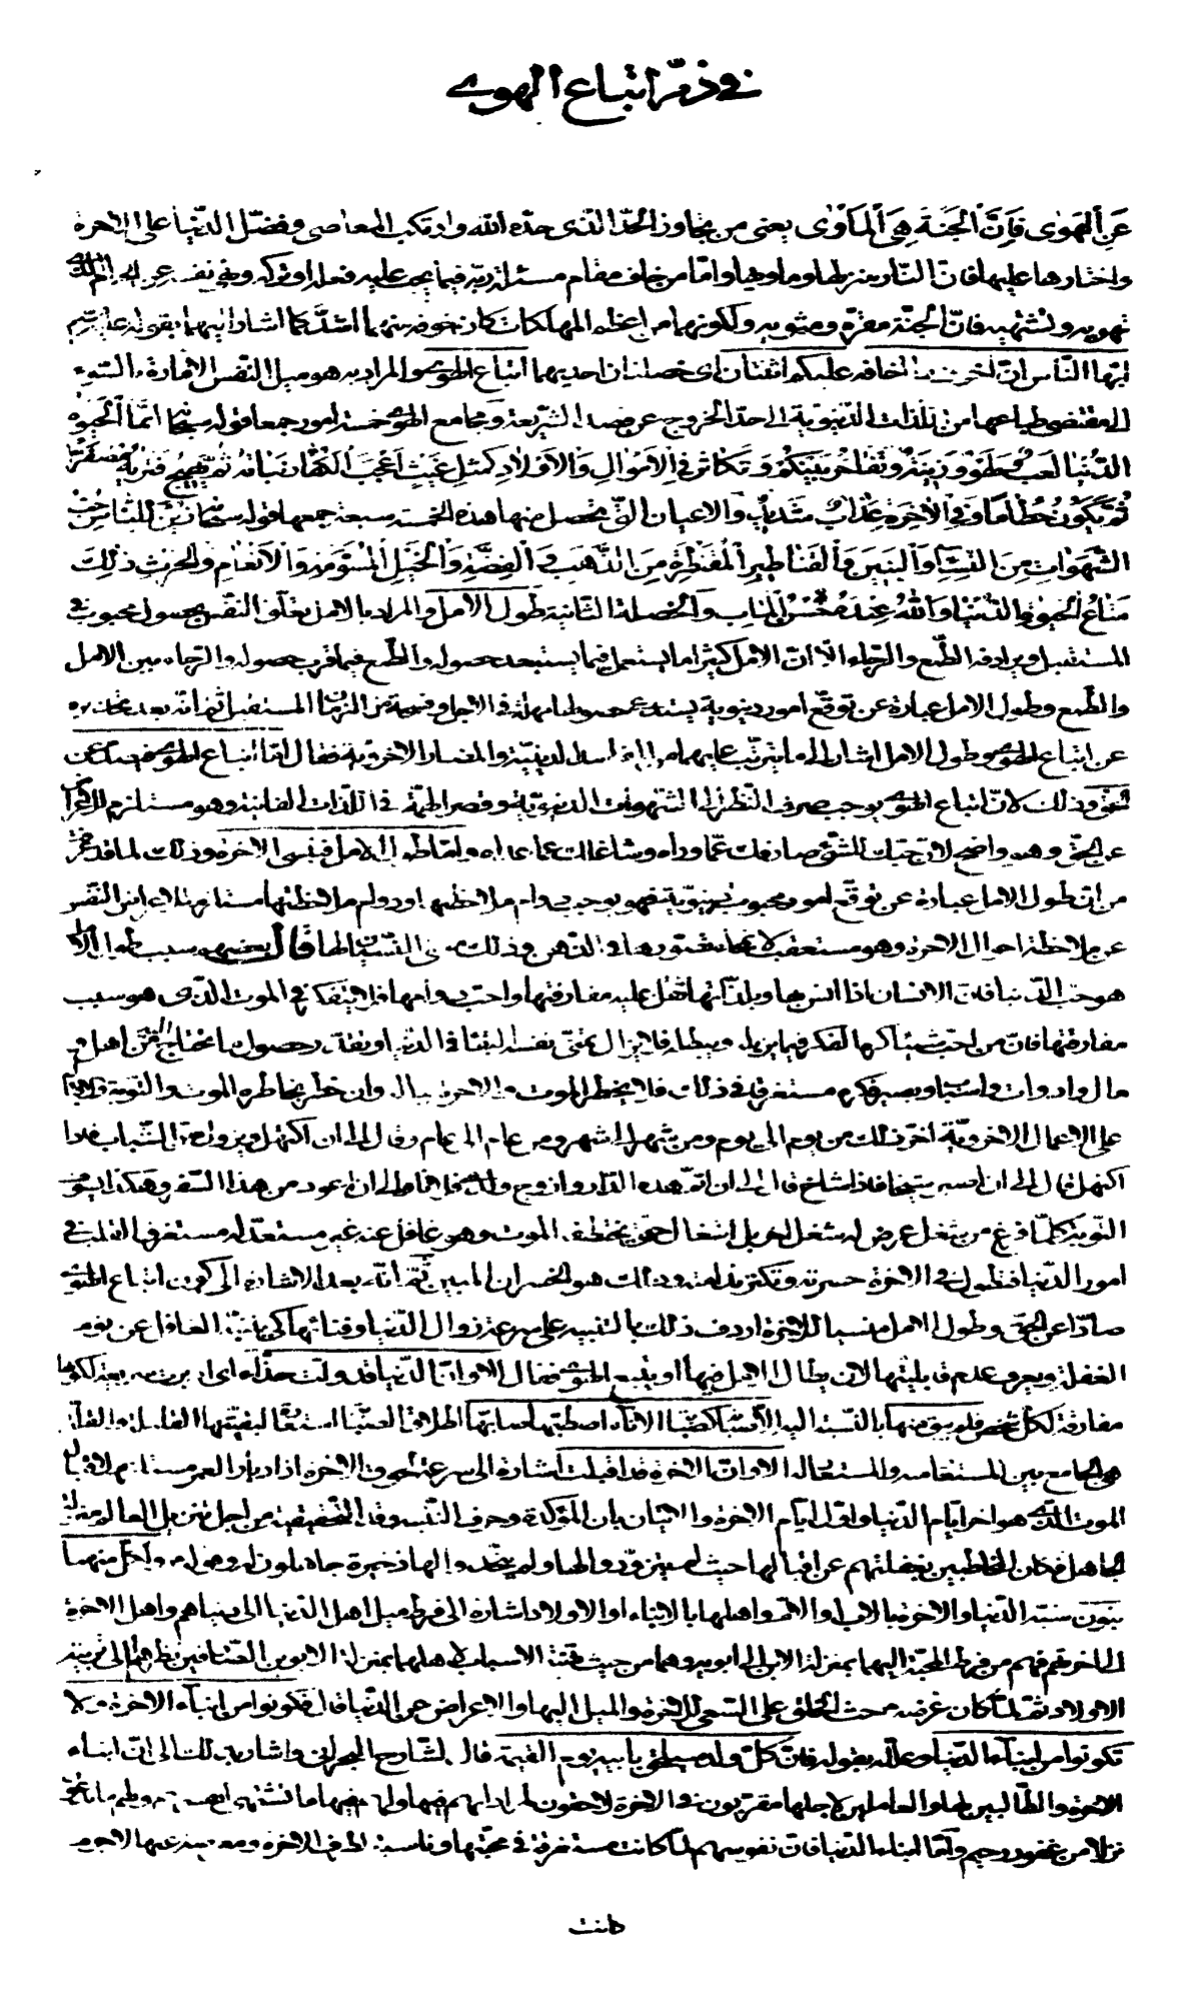 في ذمّ اتباع الهوى
عَنِ الْهَوٰى فَاِنَّ الْجَنَّةَ هِيَ الْمَأْوٰى يعنى من تجاوز الحدّ الذى حدّه الله وارتكب المعاصى وفضّل الدّنيا على الاخرة
واختارها عليها فانّ النّار منزلها وماويها وامّا من خاف مقام مسئلة ربّه فيما يجب عليه فعله او تركه ونهى نفسه عن الحرام الذى
تهويه وتشتهيه فانّ الجنّة مقرّه ومثويه ولكونهما من اعظم المهلكات كان خوفه منهما اشدّ كما اشار اليهما بقوله
ايّها النّاس انّ اخوف ما اخاف عليكم اثنتان اى خصلتان احديهما اتباع الهوى والمراد به هو ميل النّفس الامّارة بالسّوء
الى مقتضى طباعها من اللّذات الدّنيويّة الى حدّ الخروج عن الشّريعة ومجامع الهوى خمسة امور جمعها قوله سبحانه انّما الحيوة
الدّنيا لعب ولهو وزينة وتفاخر بينكم وتكاثر فى الاموال والاولاد كمثل غيث اعجب الكفّار نباته ثمّ يهيج فتريه مصفرّا
ثمّ يكون حطاما وفى الاخرة عذاب شديد والاعيان الّتى تحصل منها هذه الخمسة سبعة جمعها قوله سبحانه زيّن للنّاس حبّ
الشّهوات من النّساء والبنين والقناطير المقنطرة من الذّهب والفضّة والخيل المسوّمة والانعام والحرث ذلك
متاع الحيوة الدّنيا والله عنده حسن المآب والخصلة الثّانية طول الامل والمراد بالامل تعلّق النّفس بحصول محبوب فى
المستقبل ويرادفه الطّمع والرّجاء الّا انّ الامل كثيرا ما يستعمل فيما يستبعد حصوله والطّمع فيما قرب حصوله والرّجاء بين الامل
والطّمع وطول الامل عبارة عن توقّع امور دنيوية يستدعى حصولها مهلة فى الاجل وفسحة من الزّمان المستقبل ثمّ انّه بعد تحذيره
عن اتباع الهوى وطول الامل اشار الى ما يترتّب عليهما من المفاسد الدينيّة والمضار الاخرويّة فقال امّا اتباع الهوى فيصدّ عن
الحقّ وذلك لانّ اتباع الهوى يوجب صرف النّظر الى الشّهوات الدنيويّة وقصر الهمّة فى اللّذات الفانية وهو مستلزم للاعراض
عن الحقّ وهو واضح لانّ حبّك للشّىء صارفك عمّا وراه وشاغلك عمّا عداه وامّا طول الامل فينسى الاخرة وذلك لما قد
من انّ طول الامل عبارة عن توقّع امور محبوبة دنيويّة فهو يوجب دوام ملاحظتها ودوام ملاحظتها مستلزم لاعراض النّفس
عن ملاحظة احوال الاخرة وهو مستعقب لانمحاء تصوّرها فى الذّهن وذلك معنى النّسيان لها قال بعضهم سبب طول الامل
هو حبّ الدّنيا فانّ الانسان اذا انس بها وبلذّاتها ثقل عليه مفارقتها واحبّ دوامها فلا يتفكّر فى الموت الّذى هو سبب
مفارقتها فانّ من احبّ شيئا كره الفكر فيما يزيله ويبطله فلا يزال يمنّى نفسه البقاء فى الدّنيا وحصول ما يحتاج اليه من اهل و
مال وادوات واسباب ويصير فكره مستغرقا فى ذلك فلا يخطر الموت والاخرة بباله وان خطر بخاطره الموت والتّوبة والاقبال
على الاعمال الاخرويّة اخّر ذلك من يوم الى يوم ومن شهر الى شهر ومن عام الى عام وقال الى ان اكتهل ويزول سنّ الشّباب فاذا
اكتهل قال الى ان اصير شيخا فاذا شاخ قال الى ان اتمّ هذه الدّار وازوّج ولدى فلانا والى ان اعود من هذا السّفر وهكذا يسوّف
التّوبة كلّما فرغ من شغل عرض له شغل اخر بل اشغال حتّى يختطفه الموت وهو غافل عنه غير مستعدّ له مستغرق القلب فى
امور الدّنيا فتطول فى الاخرة حسرته وتكثر ندامته وذلك هو الخسران المبين ثمّ انّه بعد الاشارة الى كون اتباع الهوى
صادّا عن الحقّ وطول الامل منسيا للاخرة اردف ذلك بالتّنبيه على سرعة زوال الدّنيا وفنائها كى ينتبه الغافل عن نوم
الغفلة ويعرف عدم قابليّتها لان يطال الامل فيها او يتّبع الهوى فقال الا وانّ الدّنيا قد ولّت حذّاء اى ادبرت سريعة لكونها
مفارقة لكلّ شخص فلم يبق منها بالنّسبة اليه الّا صبابة كصبابة الاناء اصطبّها صابّها اطلاق الصبابة استعارة لبقيّتها القليلة والقلّة
هى الجامع بين المستعار منه والمستعار له الا وانّ الاخرة قد اقبلت اشارة الى سرعة لحوق الاخرة اذ ادبار العمر مستلزم لاقبال
الموت الّذى هو اخر ايّام الدّنيا واوّل ايّام الاخرة والاتيان بان المؤكّدة وحرف التّنبيه وقد التّحقيقيّة من اجل تنزيل العالم منزلة
الجاهل فكان المخاطبين بغفلتهم عن اقبالها حيث لم يتزوّدوا لها ولم يتّخذوا لها ذخيرة جاهلون له ولكلّ منهما
بنون شبّه الدّنيا والاخرة بالاب والامّ واهلها بالابناء والاولاد اشارة الى فرط ميل اهل الدّنيا الى دنياهم واهل الاخرة
الى اخرتهم فهم من فرط المحبّة اليهما بمنزلة الابن الى ابويه وهما من حيث تهيئة الاسباب لاهلهما بمنزلة الابوين الى تربية
الاولاد ثمّ لمّا كان غرضه حثّ الخلق على السّعى للاخرة والميل اليها والاعراض عن الدّنيا قال فكونوا من ابناء الاخرة ولا
تكونوا من ابناء الدّنيا وعلّله بقوله فانّ كلّ ولد سيلحق بابيه يوم القيمة قال الشّارح البحرانى واشار بذلك الى انّ ابناء
الاخرة والطّالبين لها والعاملين لاجلها مقرّبون فى الاخرة لاحقون لمراداتهم فيها ولهم فيها ما تشتهى انفسهم ولهم ما يدّعون
نزلا من غفور رحيم وامّا ابناء الدّنيا فانّ نفوسهم لمّا كانت مستغرقة فى محبّتها وناسية لطرف الاخرة ومعرضة عنها لاجرم
كانت